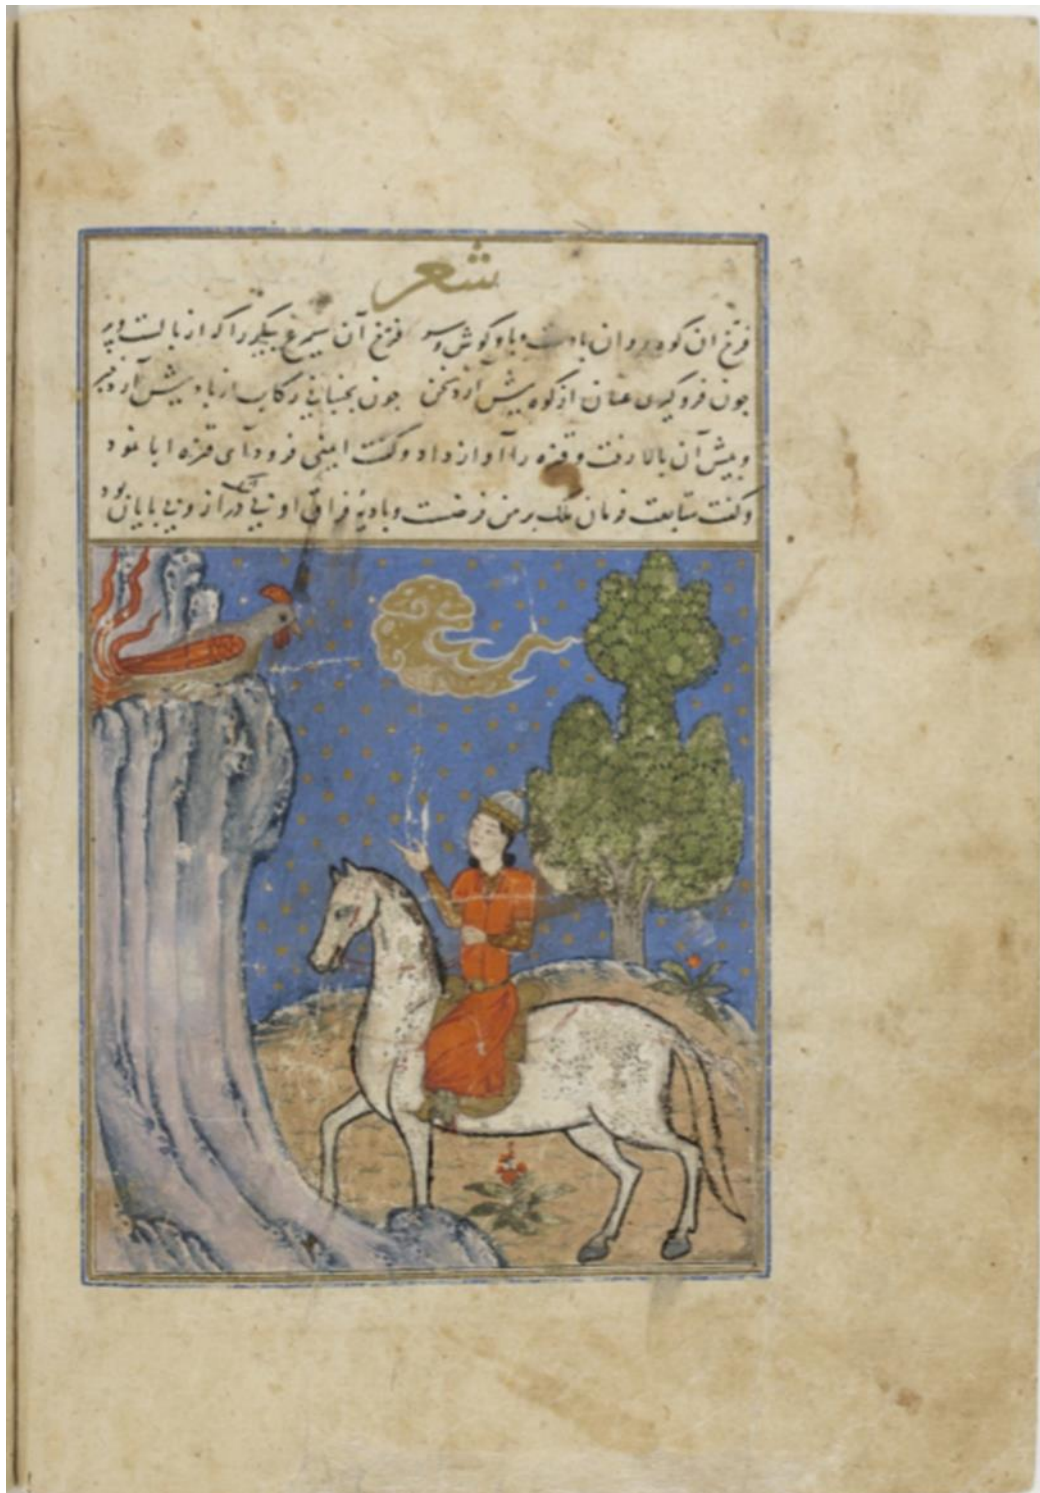 شعر
فرخ ان کوه روان باد و با و کوش و سر فرخ آن سیمرغ پیکر را که از بالست و پر
چون فرو گیری عنان از کوه بیش آرد سخن چون بجنبانی رکاب از باد بیش آرد خبر
و پیش آن بالا رفت و قنزه را آواز داد و گفت ایمنی فرود آی قنزه ابا نمود
و گفت متابعت فرمان ملک بر من فرضست و بادیهٔ فراق او نیک دراز و بی پایان بود